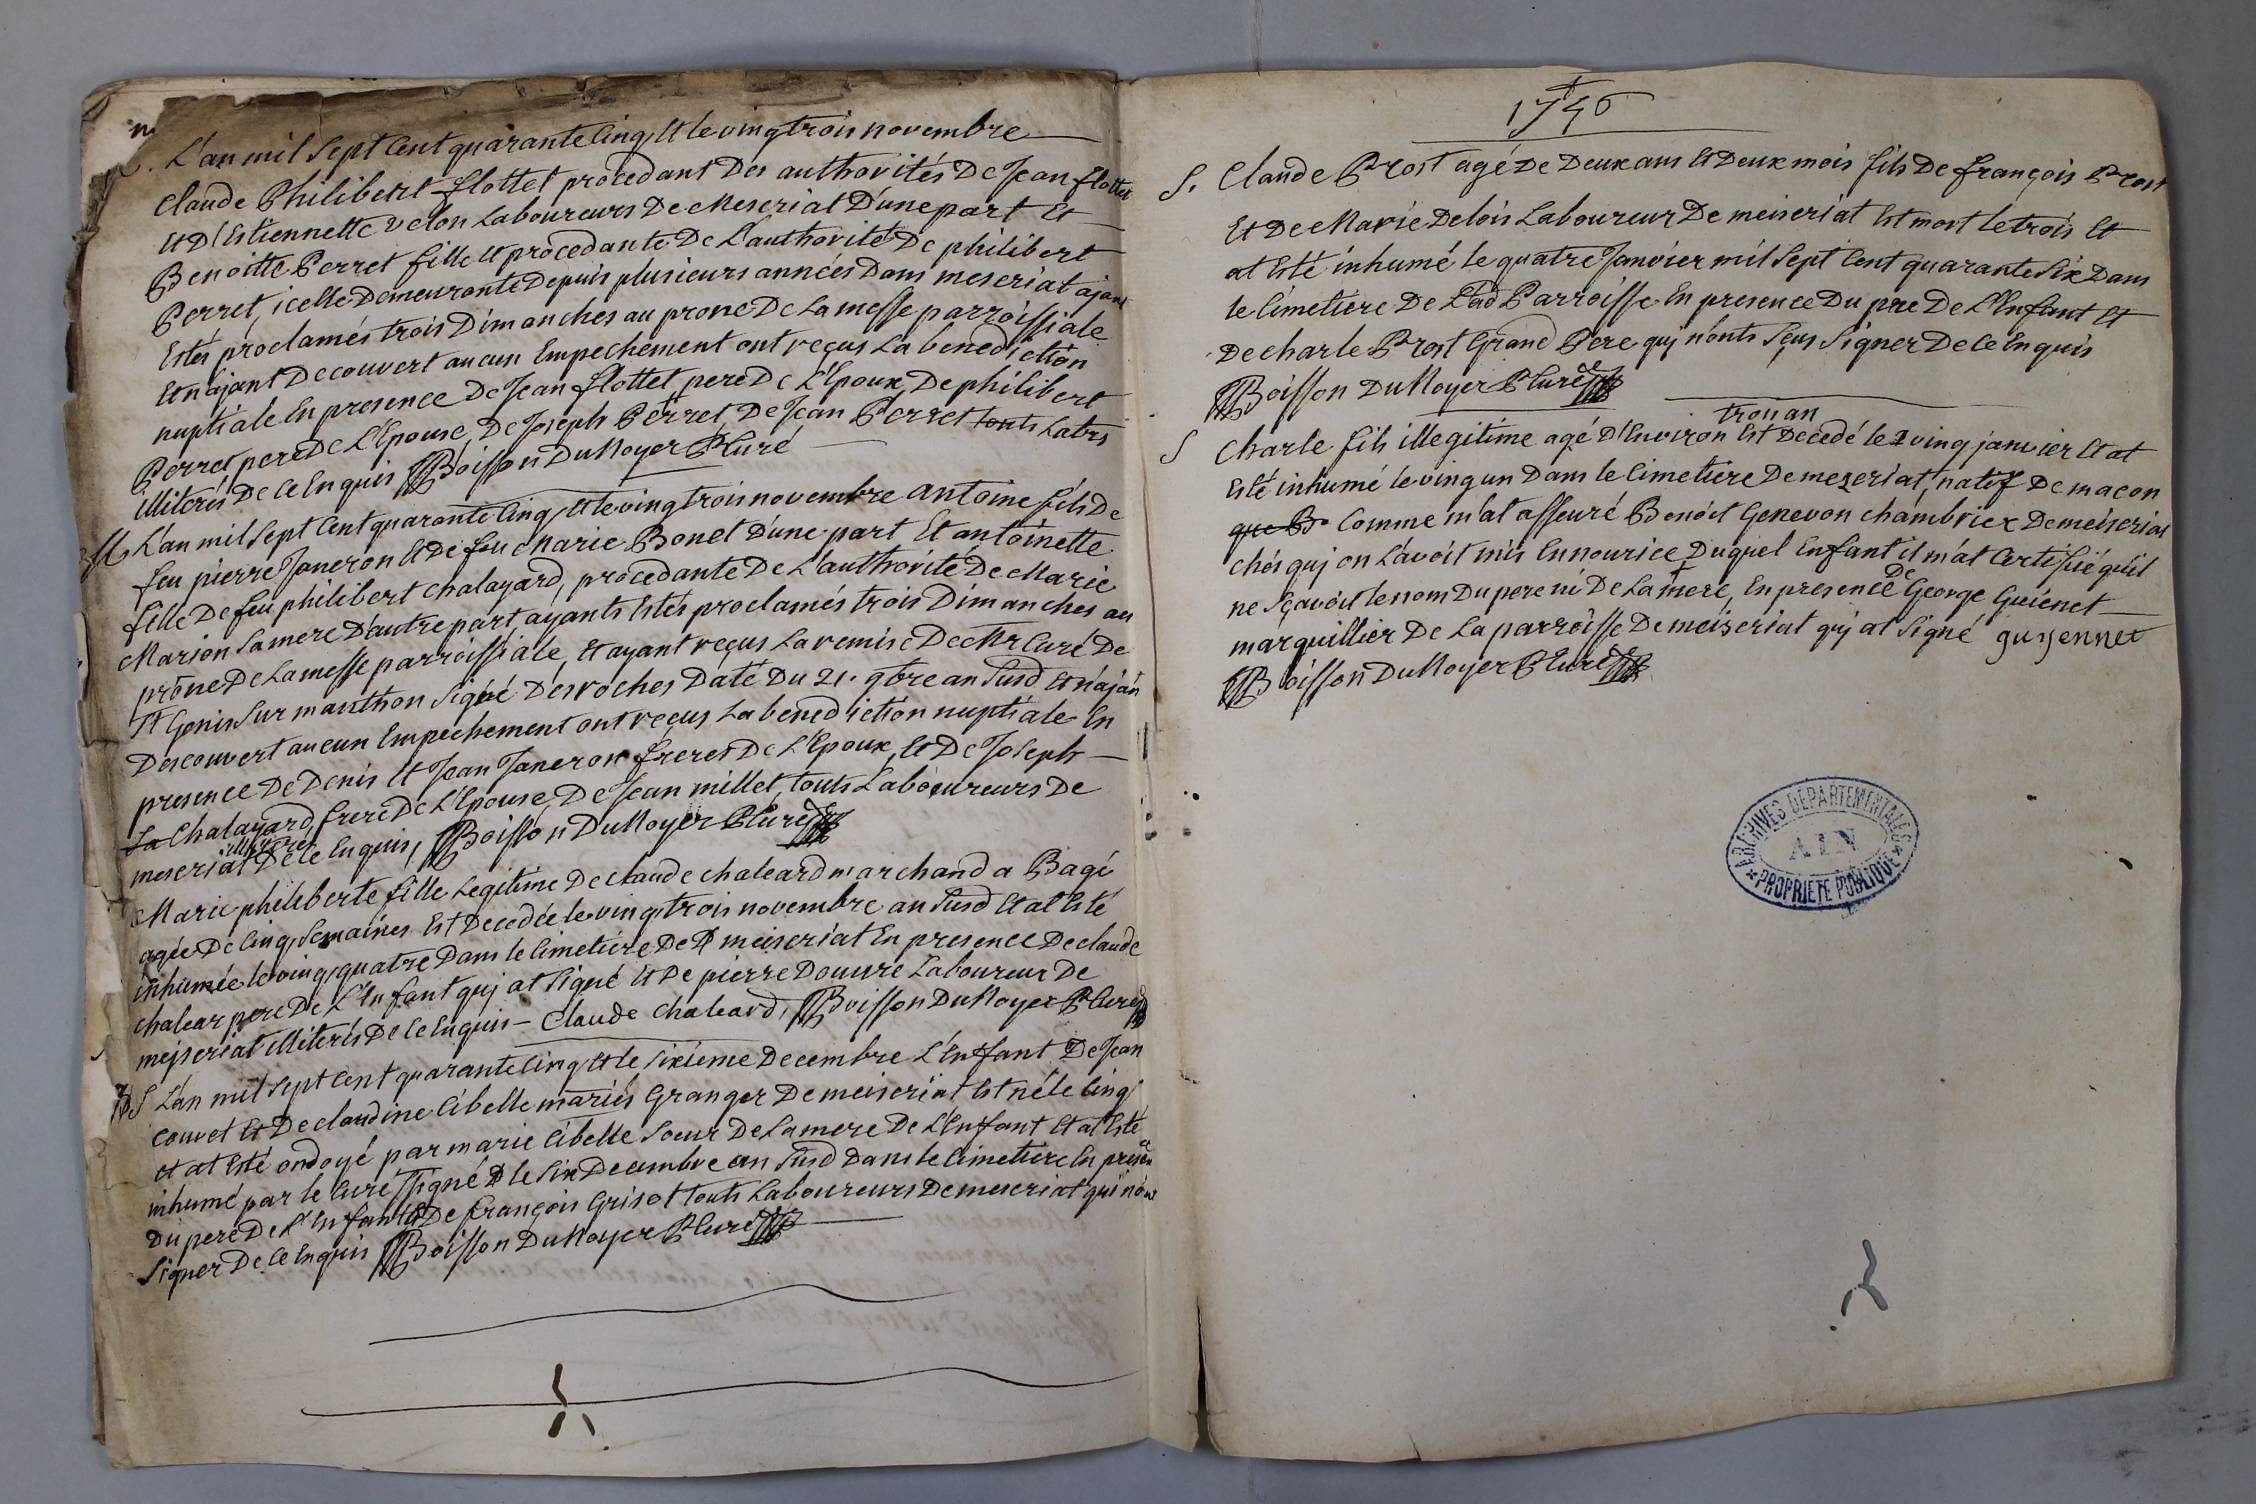 L'an mil Sept Cent quarante Cinq Et le vingtrois novembre
Claude Philibert flottet procedant Des authorités De Jean flottet
Et D'Estiennette velon Laboureurs De Meseriat D'une part Et
Benoitte Perret fille Et procedante De L'authorité De philibert
Perret, icelle Demeurante Depuis plusieurs années Dans meseriat ajant
Estés proclamés trois Dimanches au prone De La messe parroissiale
Et n'ajant Decouvert aucun Empechement ont reçus La benediction
nuptiale En presence De Jean flottet pere De L'Epoux, De philibert
Perret pere De L'Epouse, De Joseph Perret, De Jean Perret touts Labrs
illiterés De Ce Enquis Boisson DuNoyer Curé
M L'an mil Sept Cent quarante Cinq Et le vingtrois novembre antoine fils De
feu pierre Janeron Et De feu Marie Bonet D'une part Et antoinette
fille De feu philibert Chalayard, procedante De L'authorité De Marie
Marion Sa mere D'autre part ayants Estés proclamés trois Dimanches au
prône De La messe parroissiale, Et ayant reçus La remise De Mr Curé De
St Genis Sur manthon Signé Desroches Daté Du 21. 9bre an Susd Et n'ajan
Descouvert aucun Empechement ont reçus La benediction nuptiale En
presence De Denis Et Jean Janeron freres De L'Epoux, Et De Joseph
La Chalayard, frere De L'Epouse, De Jean millet, touts Laboureurs De
illiterés
meseriat De Ce Enquis, Boisson DuNoyer Curé
Marie philiberte fille Legitime De Claude chaleard marchand a Bagé
agée De Cinq Semaines Est Decedée le vingtrois novembre an Susd Et at Esté
inhumée le vingquatre Dans le Cimetiere De meiseriat En presence De claude
chalear pere De L'Enfant quj at Signé Et De pierre Douvre Laboureur De
mejseriat illiterés De Ce Enquis - Claude chaleard, Boisson DuNoyer Curé
S L'an mil Sept Cent quarante Cinq Et le Sixieme Decembre L'Enfant De Jean
Couvet Et De claudine Cibelle mariés Granger De meiseriat Est né le Cinq
et at Esté ondoyé par marie Cibelle Soeur De La mere De L'Enfant Et at Esté
inhumé par le Curé Ssigné le Six Decembre an Susd Dans le Cimetiere En presence
Du pere De L'Enfant Et De françois Grisot touts Laboureurs De meseriat qui n'ont
Signer De Ce Enquis Boisson DuNoyer Curé
1746
S. Claude Prost agé De Deux ans Et Deux mois fils De françois Prost
Et De Marie Delois Laboureur De meiseriat Est mort le trois Et
at Esté inhumé le quatre Janvier mil Sept Cent quarante Six Dans
le Cimetiere De Lad Parroisse En presence Du pre De L'Enfant Et
De charle Prost Grand Pere quj n'onts Sçus Signer De Ce Enquis
Boisson DuNoyer Curé
trou an
S Charle fils illegitime agé D'Environ Est Decedé le ving janvier Et at
Esté inhumé le vingun Dans le Cimetiere De mezeriat, natif De macon
que Comme m'at asseuré Benoit Genevon chambrier De meiseriat
chés quj on L'avoit mis En nourice Duquel Enfant il m'at Certifié qu'il
ne Sçavoit le nom Du pere ni De La mere, En presence De George Guienet
marguillier De La parroisse De meizeriat quj at Signé guyennet
Boisson DuNoyer Curé
ARCHIVES DÉPARTEMENTALES
AIN
PROPRIETE PUBLIQUE